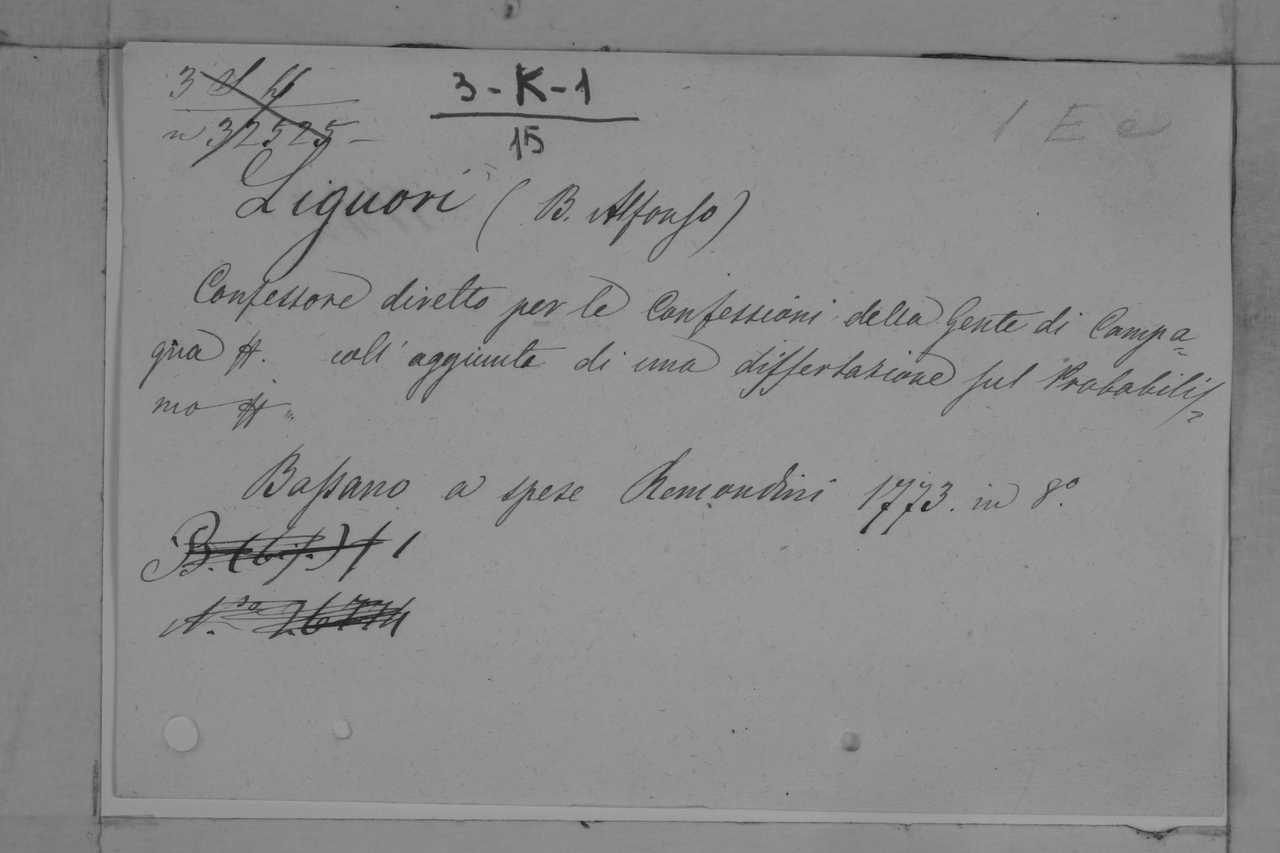 3-K-1
15
1 E e
n 32525
Liguori (B. Alfonso)
Confessore diretto per le Confessioni della Gente di Campa=
gna #. coll'aggiunta di una dissertazione sul Probabilis=
mo #.
Bassano a spese Remondini 1773. in 8º.